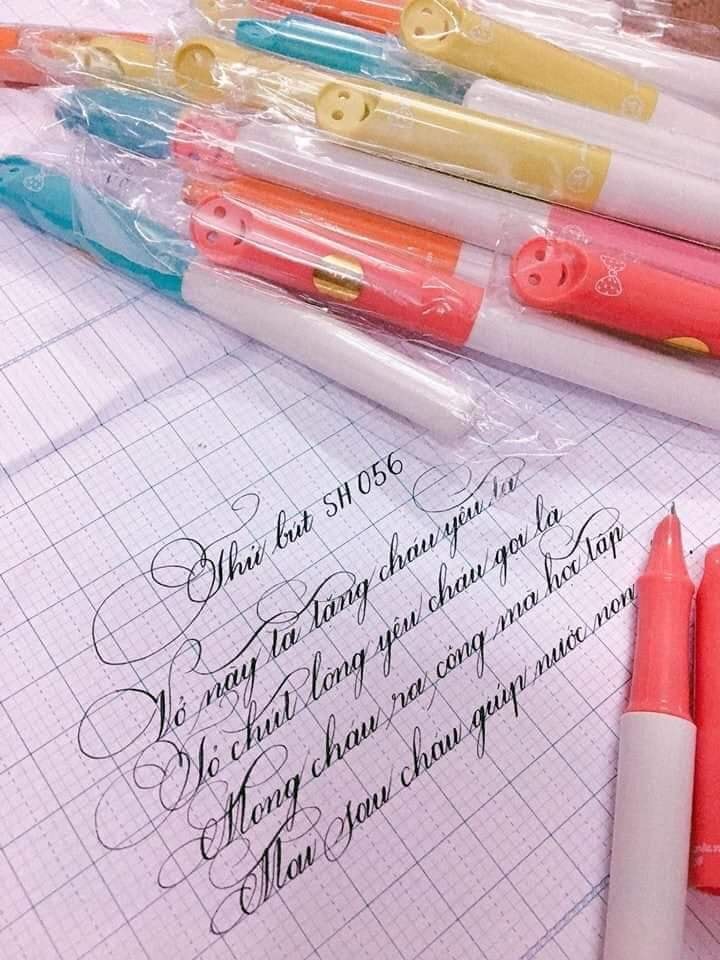 Thử bút SH 056
Vở này ta tặng cháu yêu ta
Tỏ chút lòng yêu cháu gọi là
Mong cháu ra công mà học tập
Mai sau cháu giúp nước non